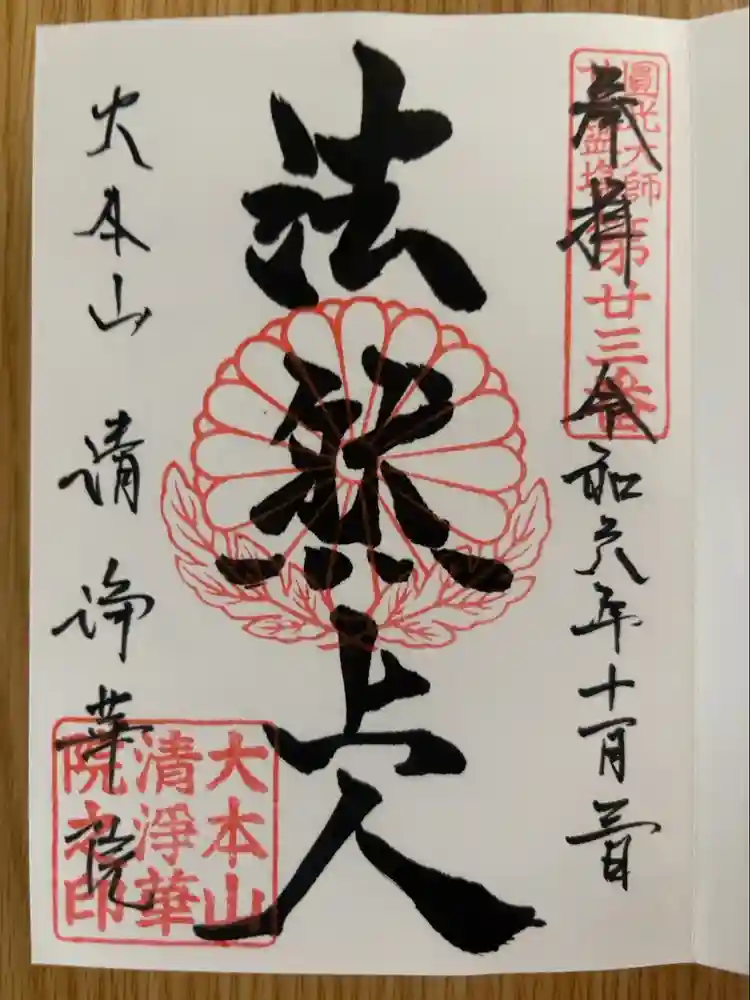 圓光大師
第廿三番
奉拝 令和六年十一月三日
法然上人
大本山 清浄華院
大本山
清淨華
院之印